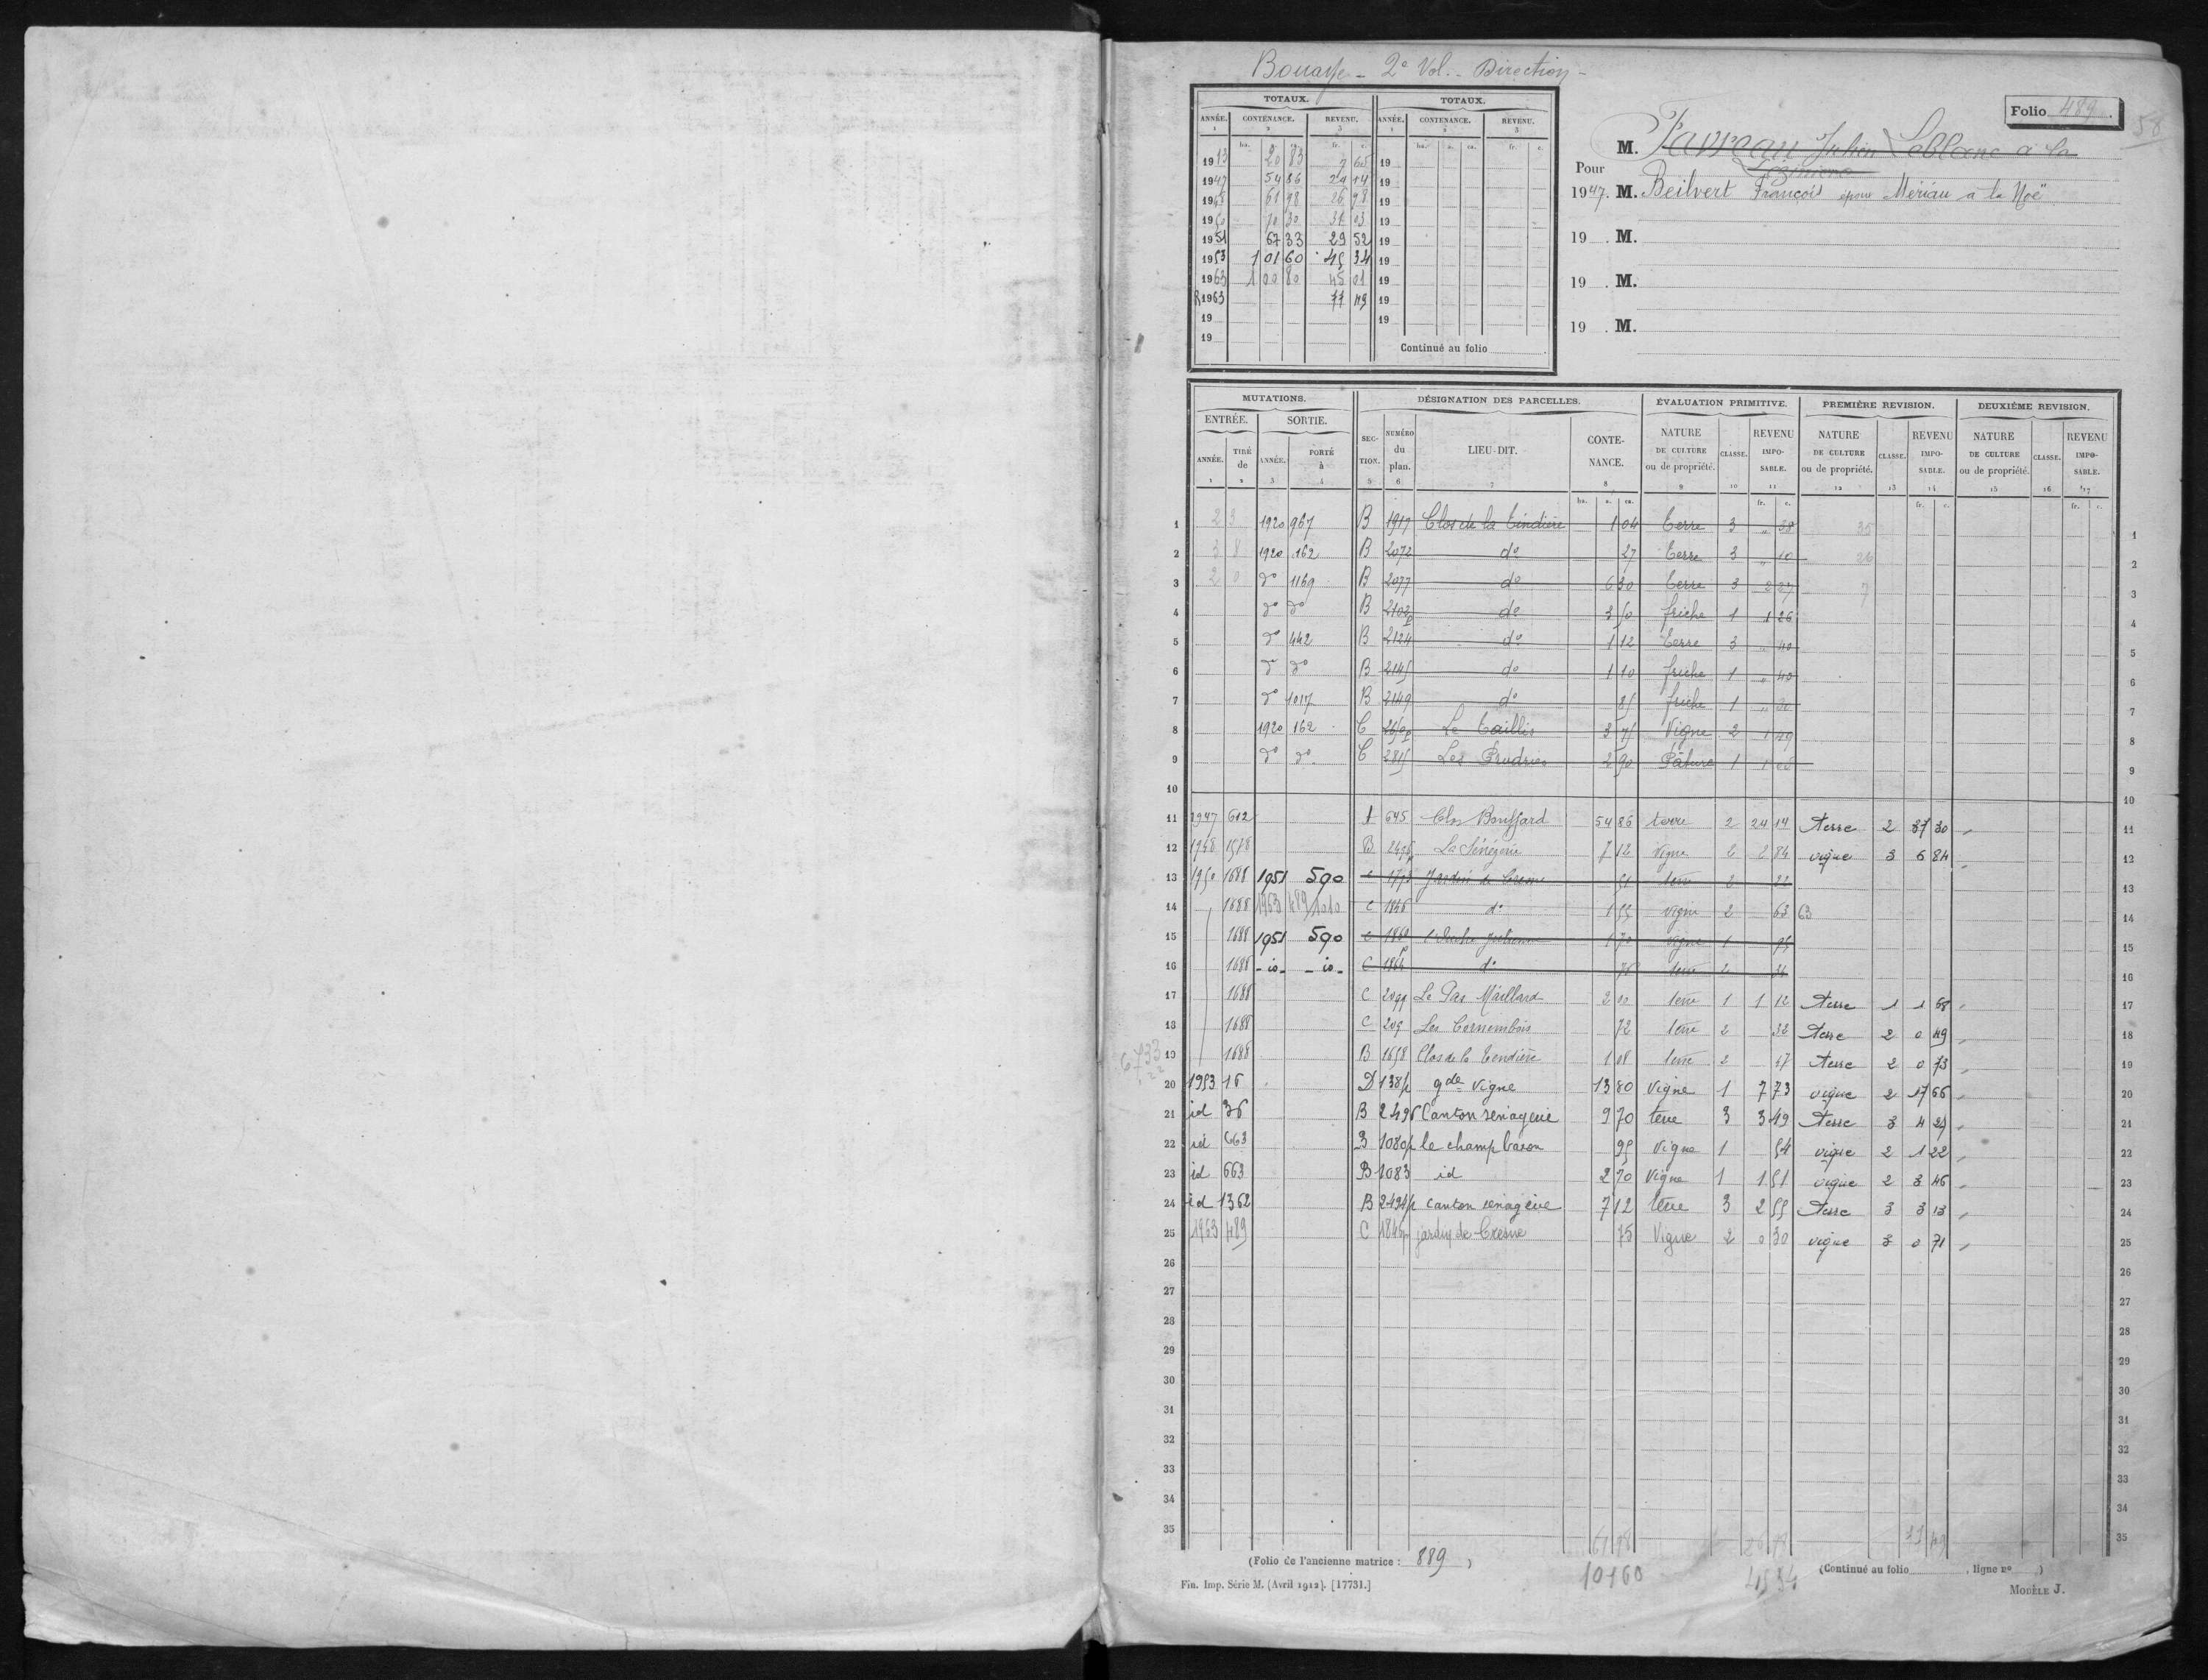 Bouaye - 2e Vol. - Direction -
Folio 489.
58
TOTAUX. TOTAUX.
ANNÉE. CONTENANCE. REVENU. ANNÉE. CONTENANCE. REVENU.
1 2 3 1 2 3
ha. a. ca. fr. c. ha. a. ca. fr. c.
1913 20 83 7 65 19
1947 54 86 24 14 19
1948 61 98 26 98 19
19 70 30 31 03 19
1951 67 33 29 52 19
1953 1 01 60 45 34 19
1963 1 00 80 45 01 19
R1963 77 49 19
19 19
19
Continué au folio
M. Favreau Julien Leblanc à la
Pour
1947. M. Beilvert François époux Mériau à la Noë
19 . M.
19 . M.
19 . M.
MUTATIONS. DÉSIGNATION DES PARCELLES. ÉVALUATION PRIMITIVE. PREMIÈRE REVISION. DEUXIÈME REVISION.
ENTRÉE. SORTIE.
ANNÉE. TIRÉ de ANNÉE. PORTÉ à SECTION. NUMÉRO du plan. LIEU-DIT. CONTENANCE. NATURE DE CULTURE ou de propriété. CLASSE. REVENU IMPOSABLE. NATURE DE CULTURE ou de propriété. CLASSE. REVENU IMPOSABLE. NATURE DE CULTURE ou de propriété. CLASSE. REVENU IMPOSABLE.
1 2 3 4 5 6 7 8 9 10 11 12 13 14 15 16 17
ha. a. ca. fr. c. fr. c. fr. c.
1 2 3 1920 967 B 1917 Clos de la Tindière 1 04 Terre 3 " 38 35 1
2 3 8 1920 162 B 2072 do 27 Terre 3 " 10 26 2
3 2 0 do 1169 B 2077 do 6 30 Terre 3 2 27 7 3
4 do do B 2102p do 3 50 friche 1 1 26 4
5 do 442 B 2124 do 1 12 Terre 3 " 40 5
6 do do B 2145 do 1 10 friche 1 " 40 6
7 do 1017 B 2149 do 85 friche 1 " 30 7
8 1920 162 C 2650p Le Taillis 3 75 Vigne 2 1 49 8
9 do do C 2815 Les 2 90 Pâture 1 1 9
10 10
11 1947 612 A 645 Clos Bouffard 54 86 terre 2 24 14 terre 2 37 30 11
12 1948 1578 B La Sénégerie 7 12 Vigne 2 2 84 vigne 3 6 84 12
13 1950 1688 1951 590 C Jardin de Cresne 51 terre 2 22 13
14 1688 1963 489/1010 C 1846 do 1 55 vigne 2 63 63 14
15 1688 1951 590 C 1860 1 70 vigne 1 95 15
16 1688 -io- -io- C 1864 do 76 terre 2 16
17 1688 C 2099 Le Pas Maillard 2 00 terre 1 1 12 terre 1 1 68 17
18 1688 C 209 Les Cornembois 72 terre 2 32 terre 2 0 49 18
6733
19 1688 B 1658 Clos de la Tendière 1 08 terre 2 47 terre 2 0 73 19
20 1953 16 D 138p gde Vigne 13 80 Vigne 1 7 73 vigne 2 17 66 20
21 id 36 B 2496 Canton senagerie 9 70 terre 3 3 49 terre 3 4 27 21
22 id 663 B 1080p le champ baron 95 Vigne 1 54 vigne 2 1 22 22
23 id 663 B 1083 id 2 70 Vigne 1 1 51 vigne 2 3 46 23
24 id 1362 B 2494p canton senagerie 7 12 terre 3 2 55 terre 3 3 13 24
25 1963 489 C 1846p jardin de Cresne 75 Vigne 2 0 30 vigne 3 0 71 25
26 26
27 27
28 28
29 29
30 30
31 31
32 32
33 33
34 34
35 35
(Folio de l'ancienne matrice : 889 ) 10160 45 34 (Continué au folio , ligne no .)
Fin. Imp. Série M. (Avril 1912). [17731.] MODÈLE J.